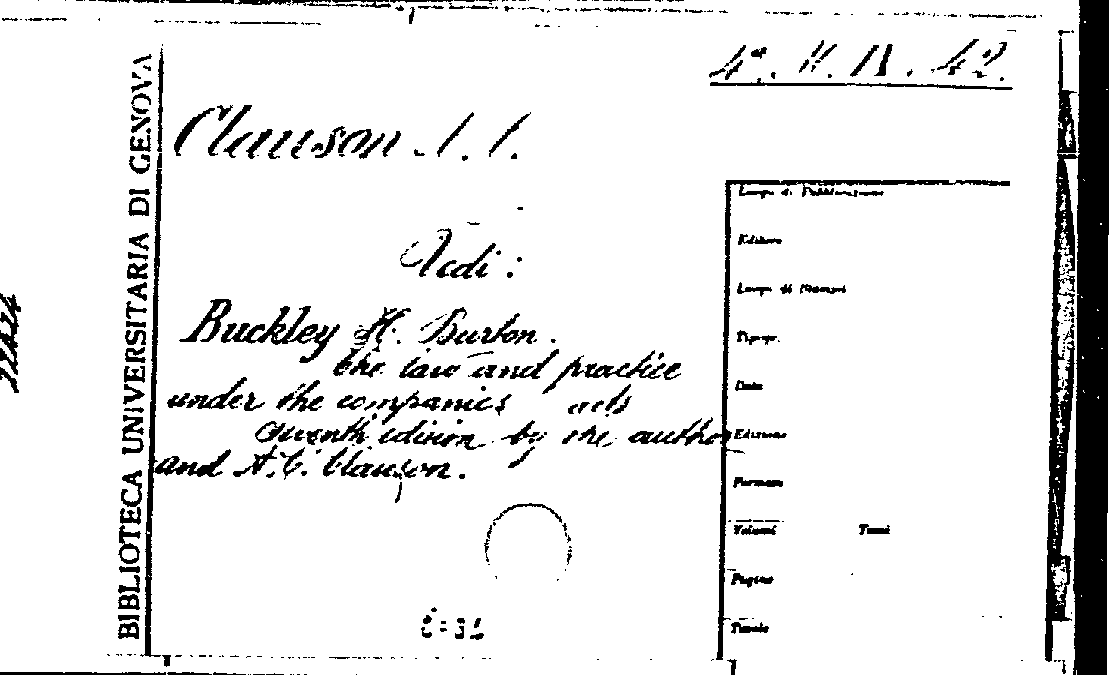 4ª. H. IX. 42.
Clauson A. C.
Vedi:
Buckley H. Burton.
the law and practice
under the companies acts
seventh edision by the author
and A. C. Clauson.
BIBLIOTECA UNIVERSITARIA DI GENOVA
Luogo di Pubblicazione
Editore
Luogo di Stampa
Tipogr.
Data
Edizione
Formato
Volumi Tomi
Pagine
Tavole